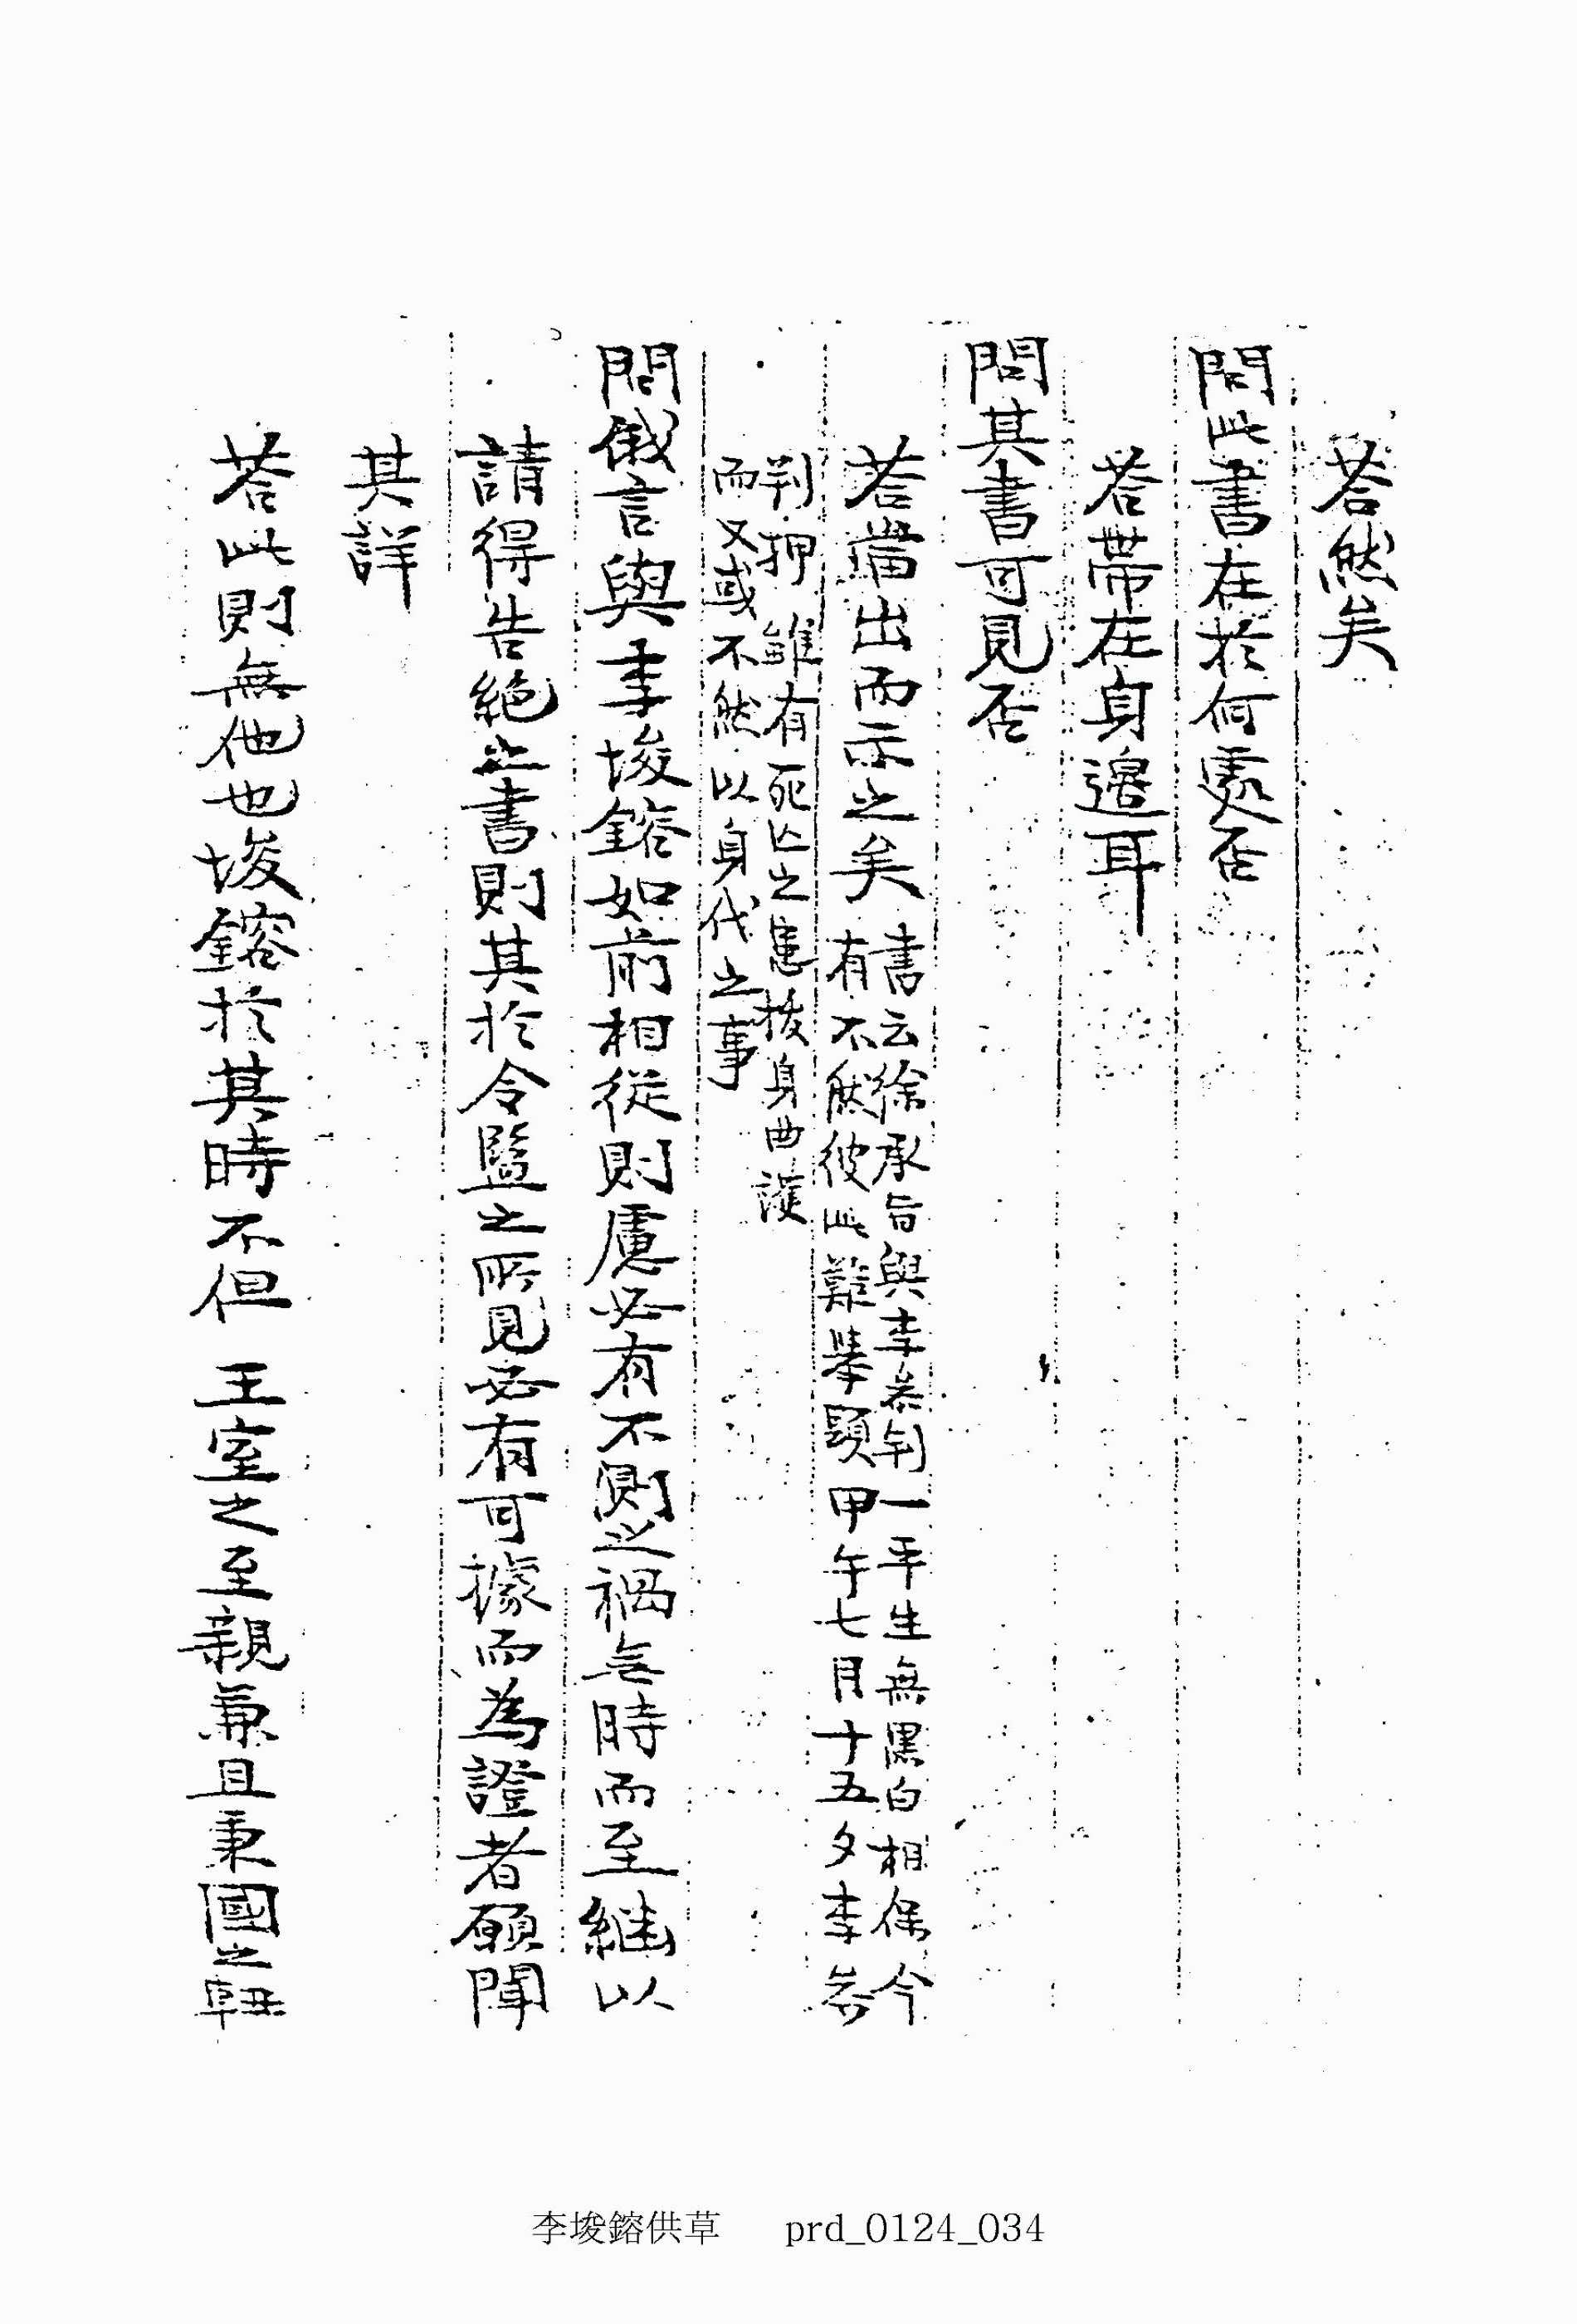 荅然矣
問此書在於何處否
荅帶在身邊耳
問其書可見否
荅當出而示之矣
書云徐承旨與李參判一平生無黑白相保今
有不然彼此難擧顯甲午七月十五夕李參
判押雖有死亡之患拔身曲護
而又或不然以身代之事
問俄言與李埈鎔如前相從則慮必有不測之禍無時而至繼以
請得告絶之書則其於令監之所見必有可據而為證者願聞
其詳
荅此則無他也埈鎔於其時不但 王室之至親兼且秉國之
李埈鎔供草 prd_0124_034